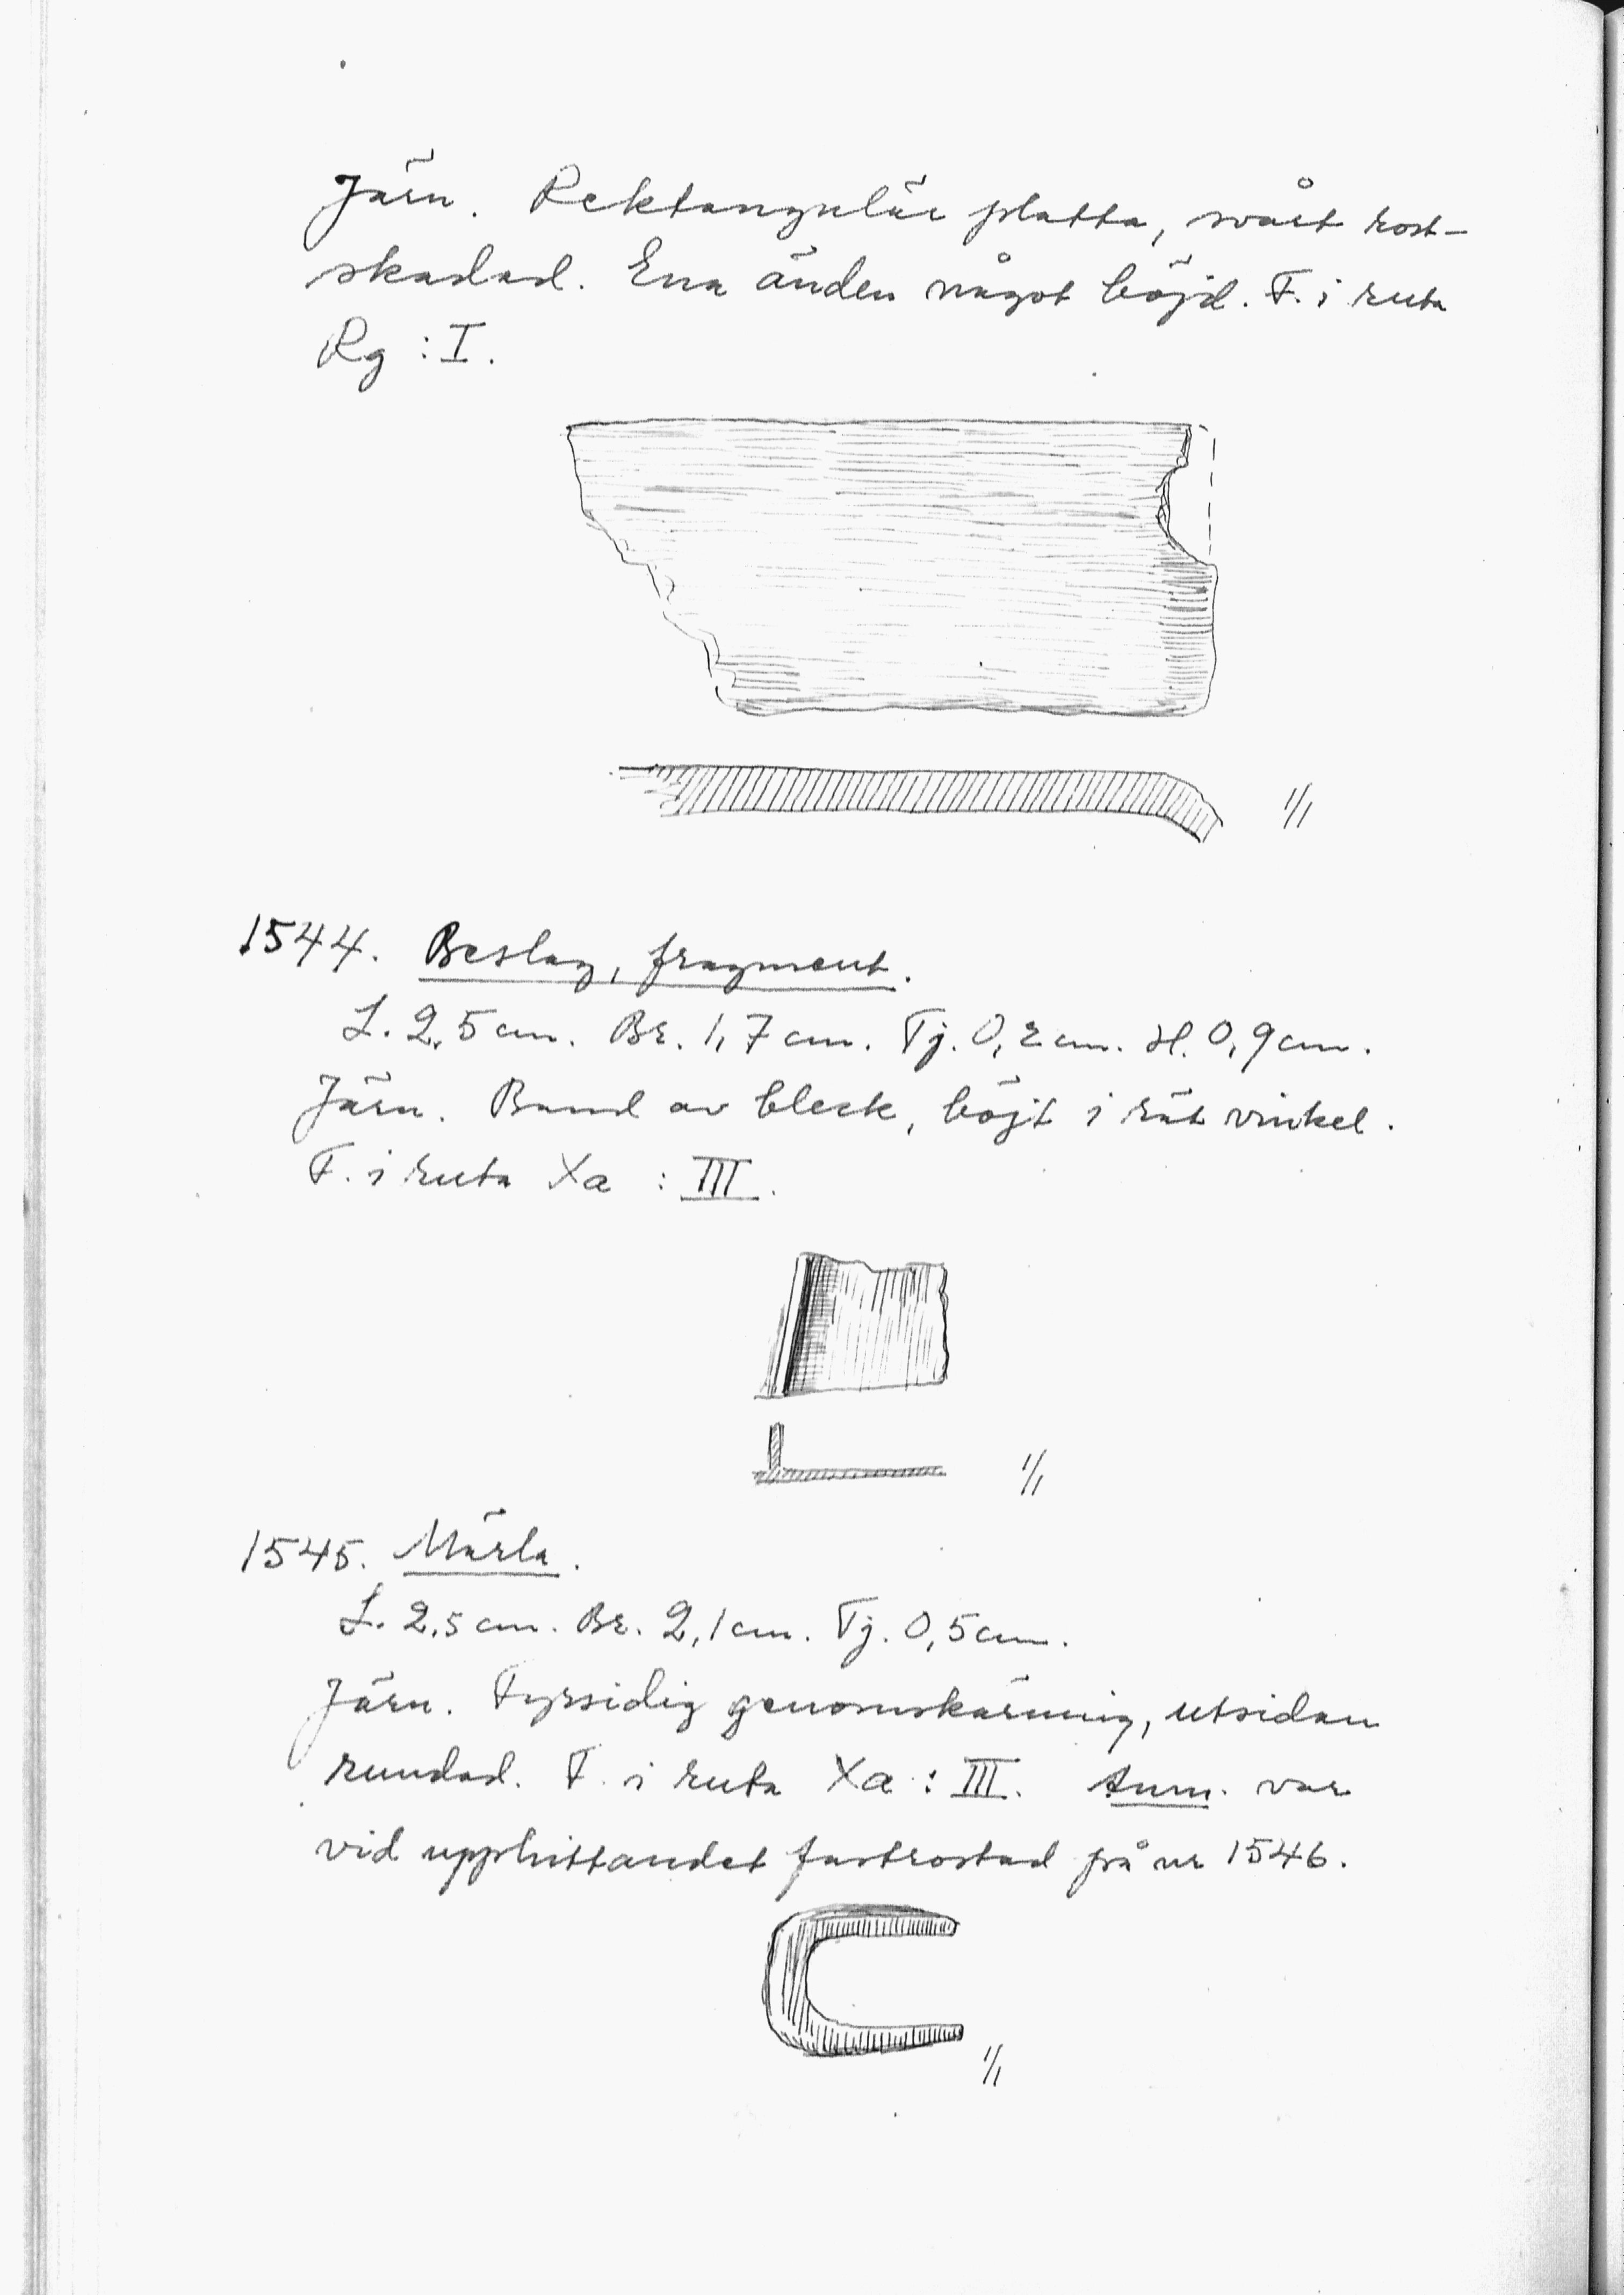 Järn. Rektangulär platta, svårt rost-
skadad. Ena änden något böjd. F. i ruta
Rg : I.
1/1
1544. Beslag, fragment.
L. 2,5 cm. Br. 1,7 cm. Tj. 0,2 cm. H. 0,9 cm.
Järn. Band av bleck, böjt i rät vinkel.
F. i ruta Xa : III.
1/1
1545. Märla.
L. 2,5 cm. Br. 2,1 cm. Tj. 0,5 cm.
Järn. Fyrsidig genomskärning, utsidan
rundad. F. i ruta Xa : III. Anm. var
vid upphittandet fastrostad på nr 1546.
1/1